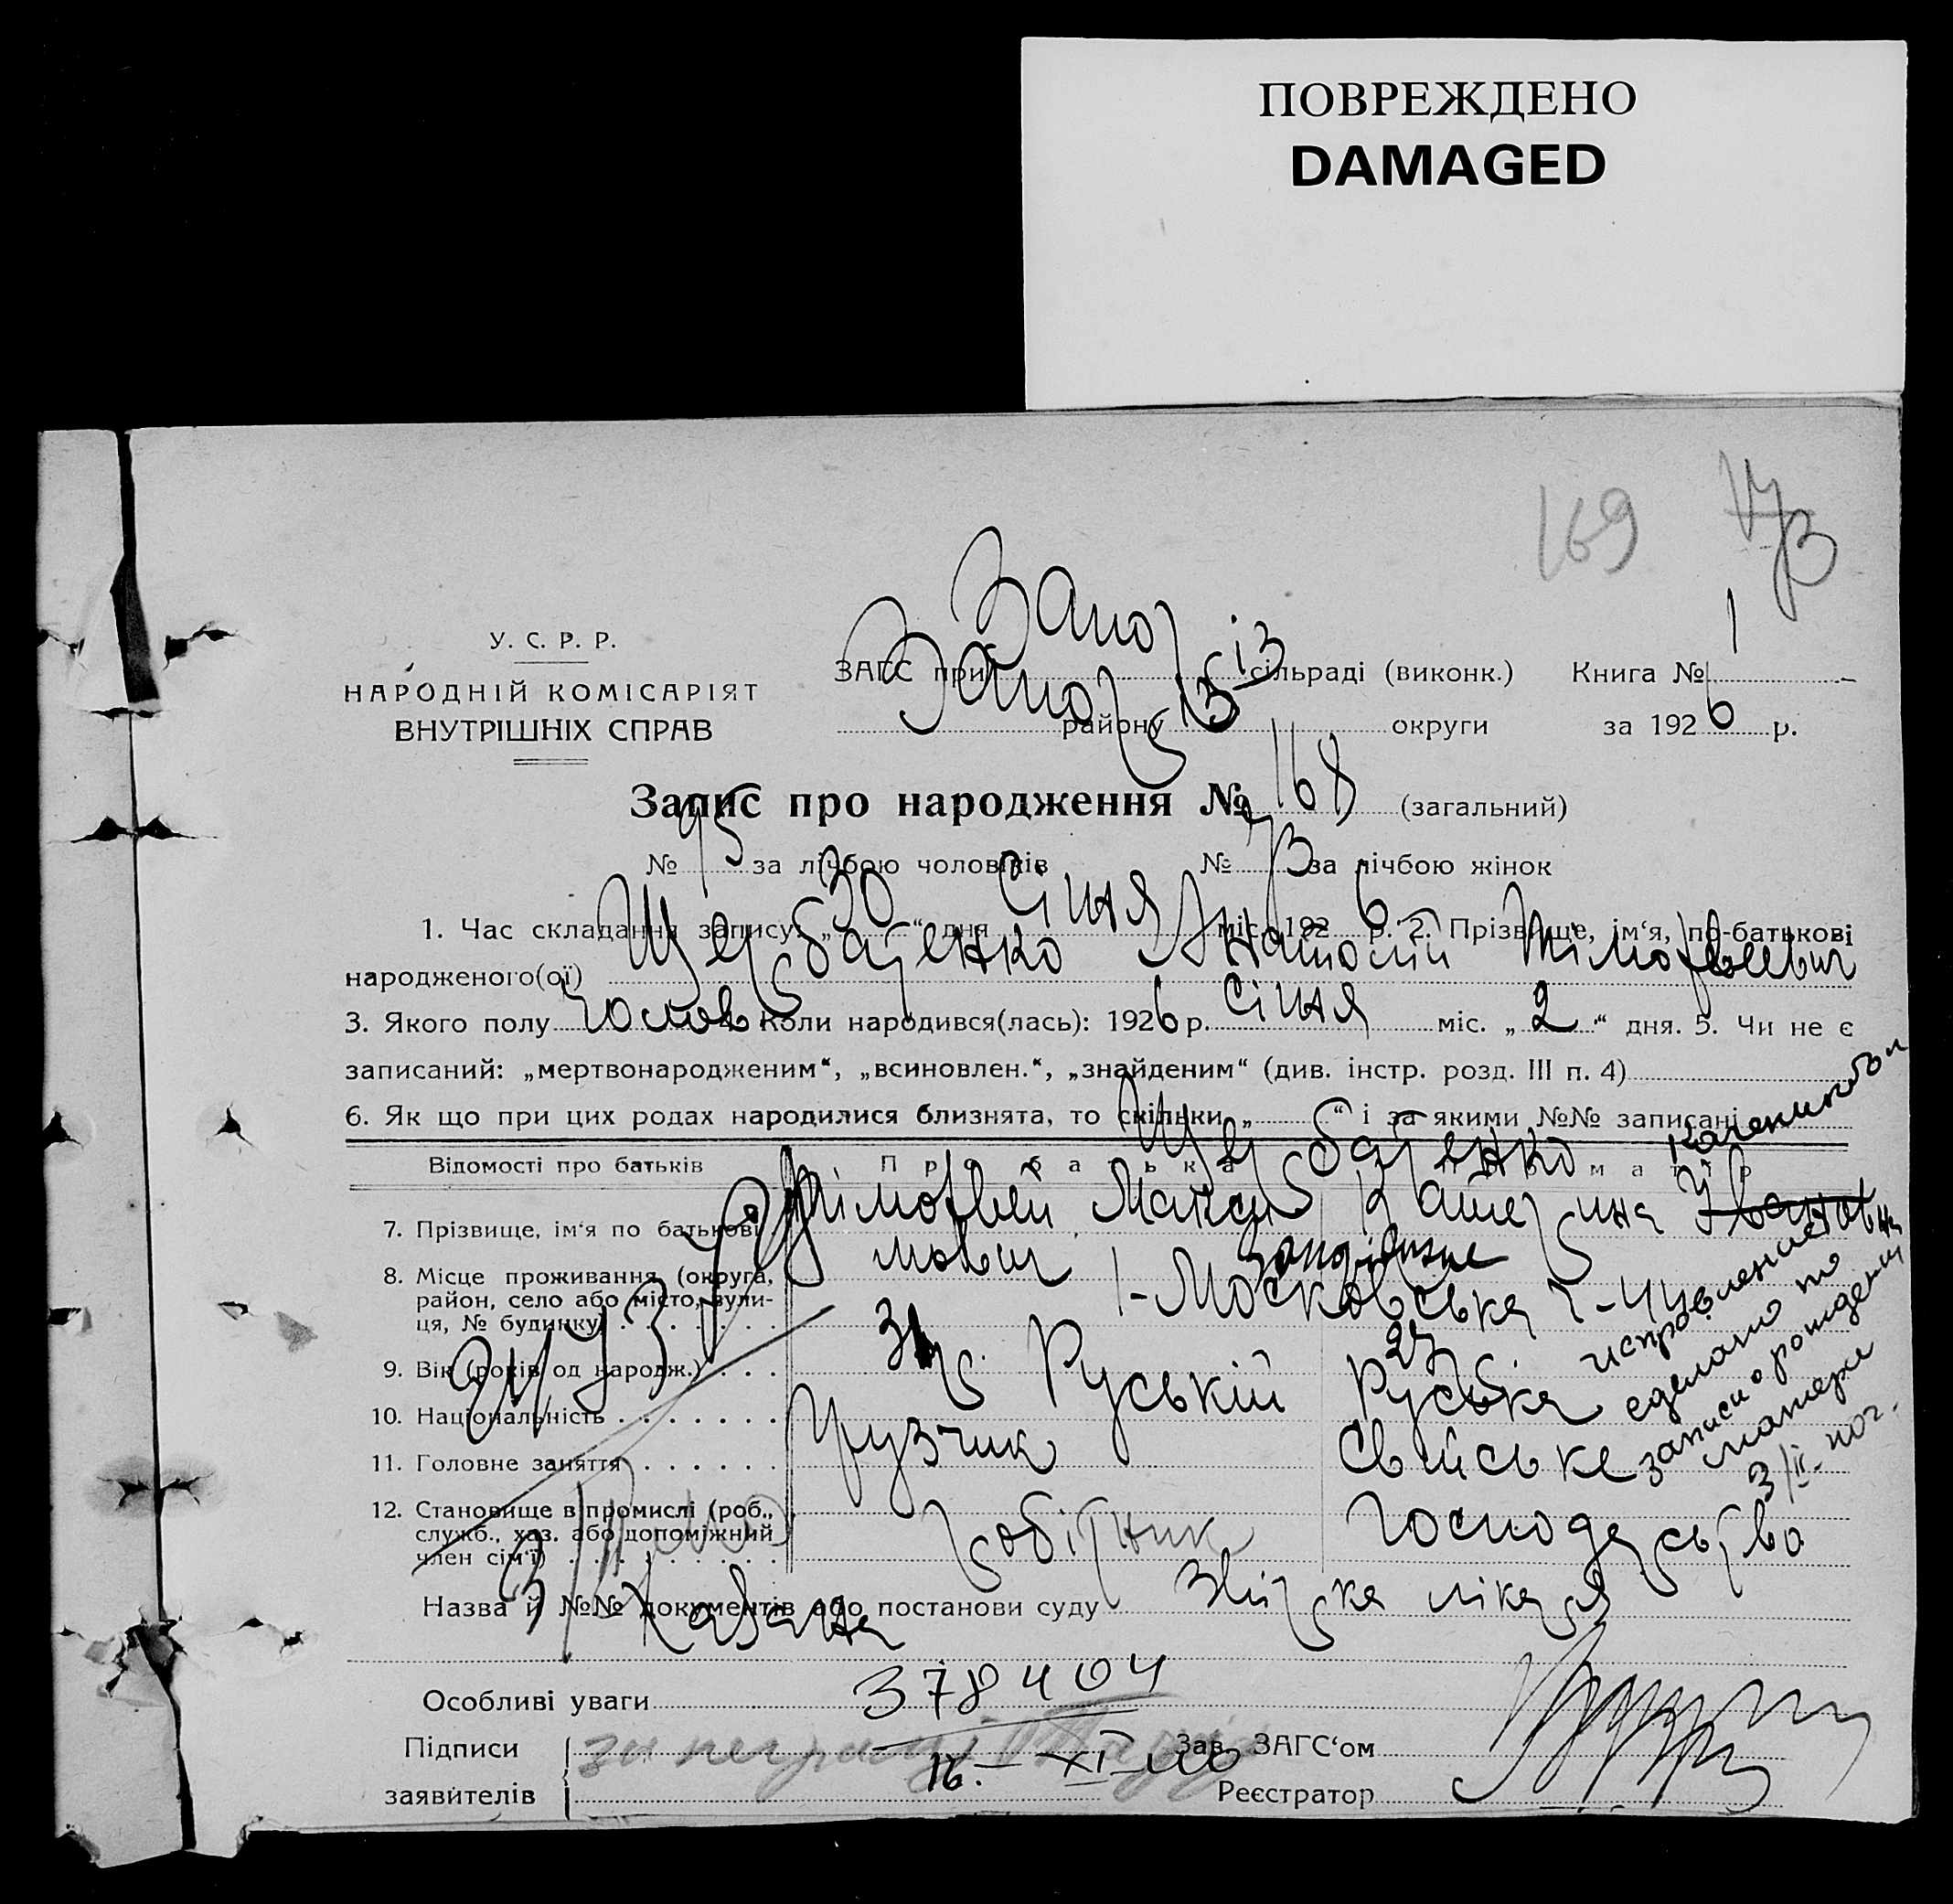 ПОВРЕЖДЕНО
DAMAGED
169 173
Запор
У. С. Р. Р.
НАРОДНІЙ КОМІСАРІЯТ
ВНУТРІШНІХ СПРАВ
ЗАГС при сільраді (виконк.) Книга № 1
Запор району округи за 1926 р.
Запис про народження № 168 (загальний)
№ 95 за лічбою чоловіків № 73 за лічбою жінок
1. Час складання запису: „30“ дня Січня міс. 1926 р. 2. Прізвище, ім‘я, по-батькові
народженого(ої) Щербаченко Анатолій Тімофеевич
3. Якого полу Чолов 4. Коли народився(лась): 1926 р. Січня міс. „2“ дня. 5. Чи не є
записаний: „мертвонародженим“, „всиновлен.“, „знайденим“ (див. інстр. розд. III п. 4)
6. Як що при цих родах народилися близнята, то скільки „ “ і за якими №№ записані
Щербаченко
Відомості про батьків Про батька матір
7. Прізвище, ім‘я по батькові Тімофей Макси мович Катерина Ивановна
8. Місце проживання (округа, район, село або місто, вули-ця, № будинку) Запоріжжє 1-Московська
9. Вік (років од народж.) 27
10. Національність Руській Руська
11. Головне заняття Грузчик Свійське Господарсьтво
12. Становище в промислі (роб., служб., хаз. або допоміжний член сім‘ї) робітник
исправление
сделано по
записи о рождении
матери
Назва й №№ документів або постанови суду Звірка лікаря
Особливі уваги 378404
Підписи заявителів
16.-XI-
Зав. ЗАГС‘ом
Реєстратор